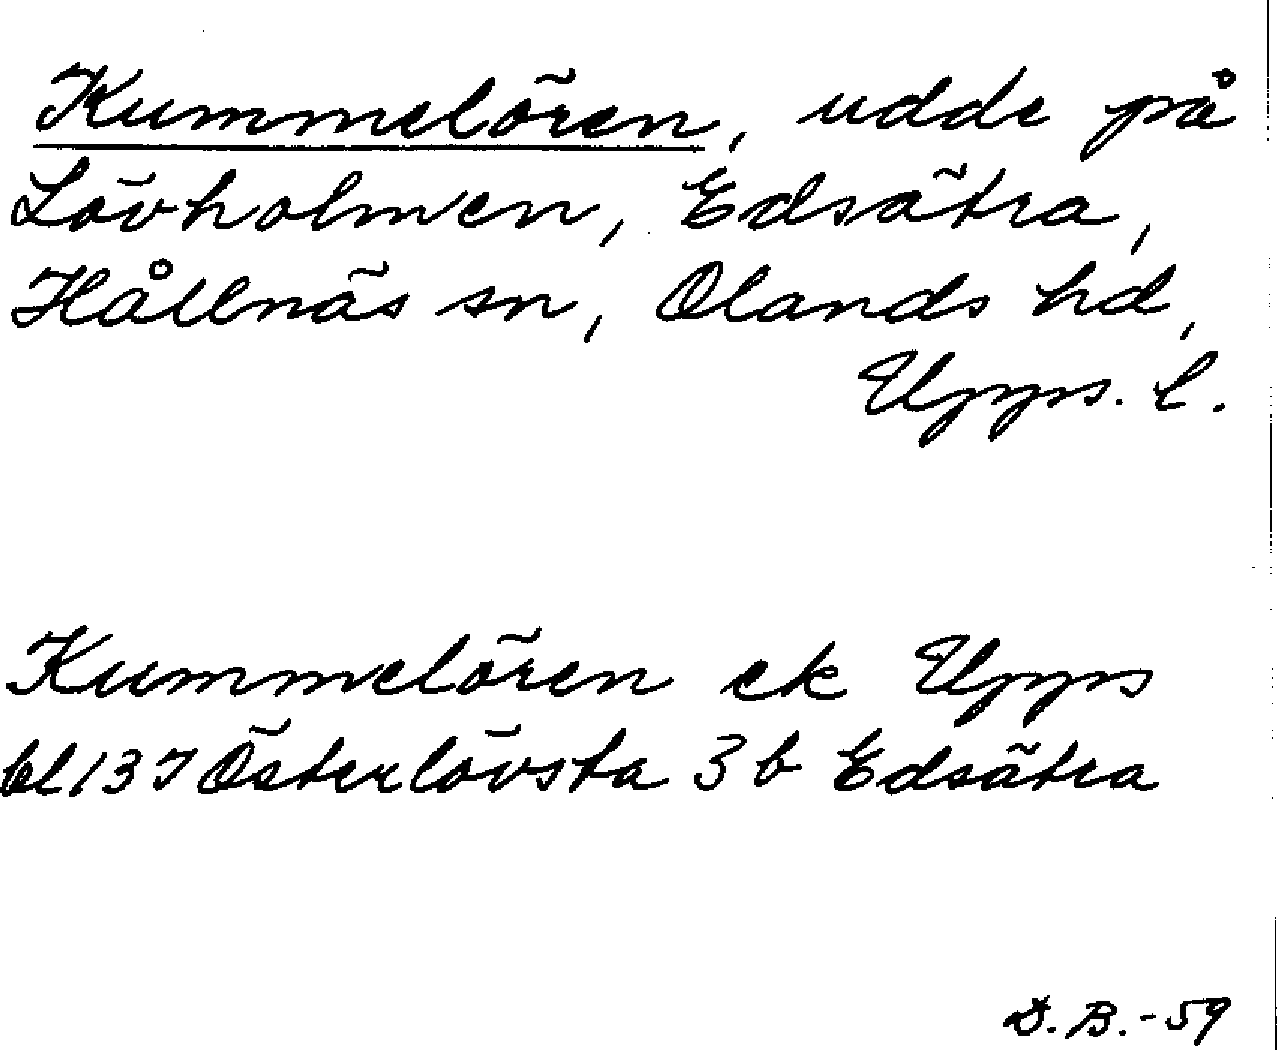 Kummelören, udde på
Lövholmen, Edsätra,
Hållnäs sn, Olands hd,
Upps. l.
Kummelören ek Upps
bl 137 Österlövsta 3 b Edsätra
D.B.-59